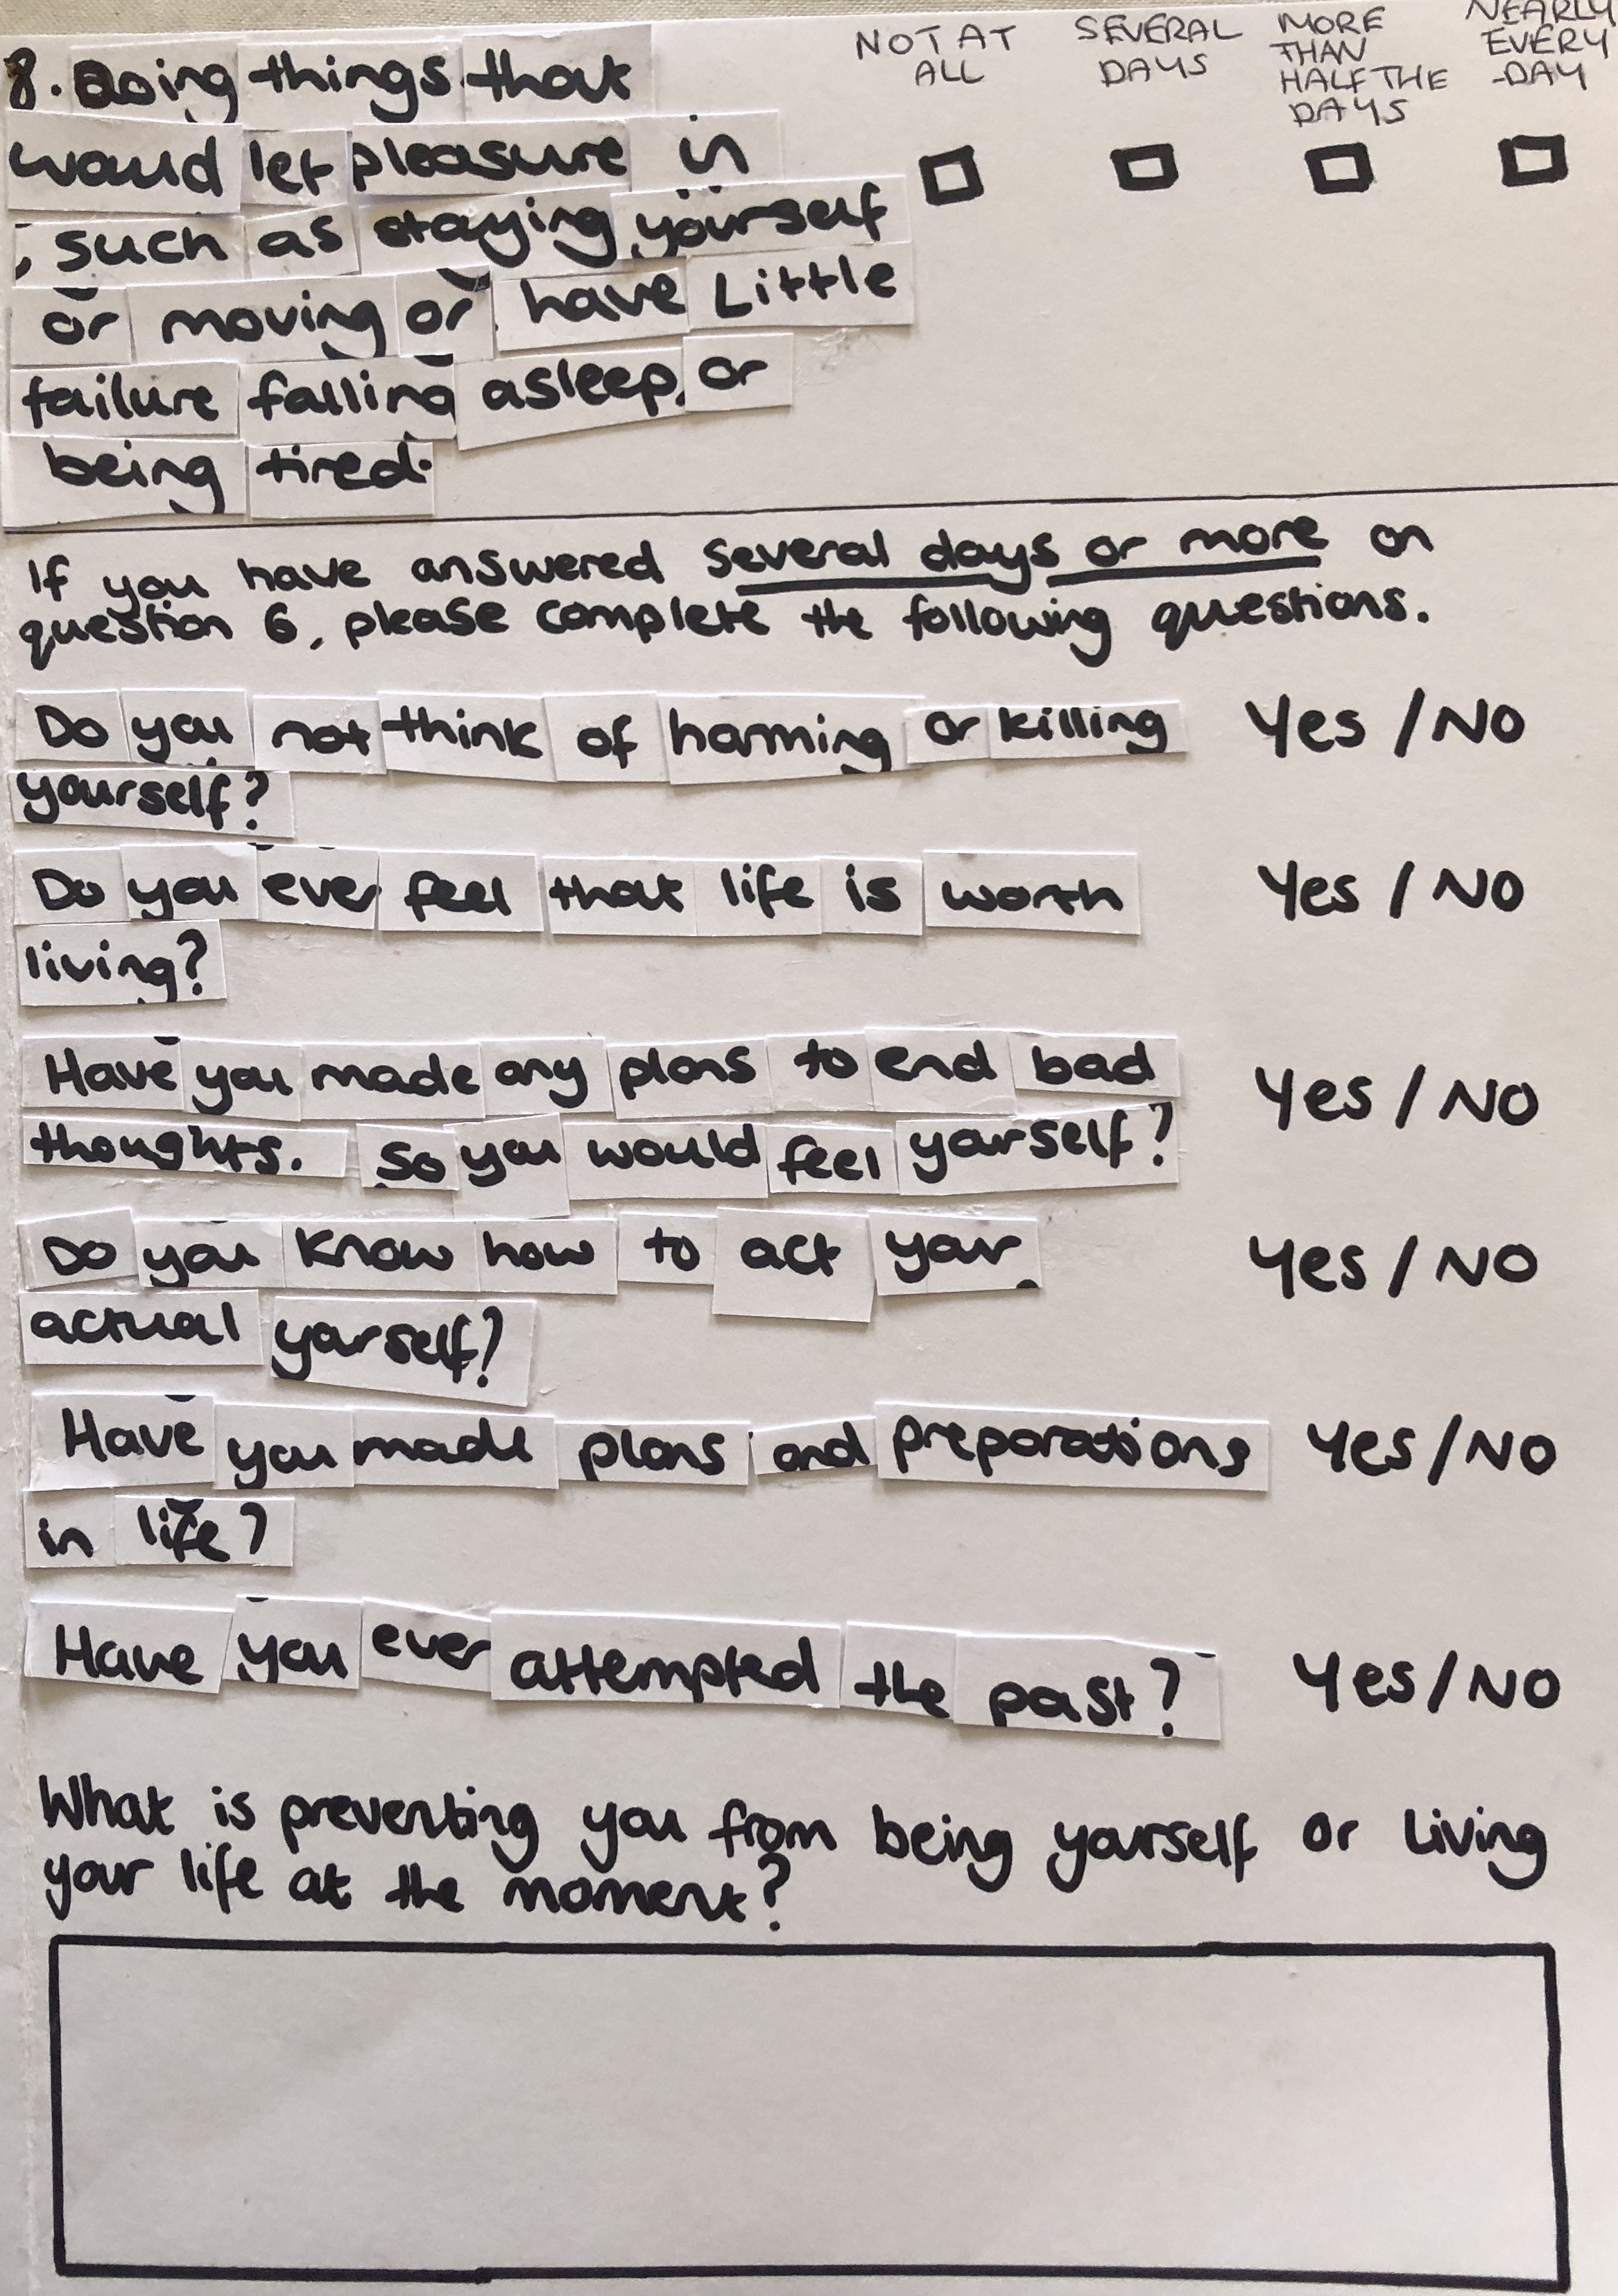 NOT AT ALL
SEVERAL DAYS
MORE THAN HALF THE DAYS
NEARLY EVERY -DAY
8. Doing things that
would let pleasure in
, such as staying yourself
or moving or have Little
failure falling asleep, or
being tired.
If you have answered several days or more on
question 6, please complete the following questions.
Do you not think of harming or killing Yes / NO
yourself?
Do you ever feel that life is worth Yes / NO
living?
Have you made any plans to end bad Yes / NO
thoughts. So you would feel yourself?
Do you know how to act your Yes / NO
actual yourself?
Have you made plans and preparations Yes / NO
in life?
Have you ever attempted the past? Yes / NO
What is preventing you from being yourself or Living
your life at the moment?